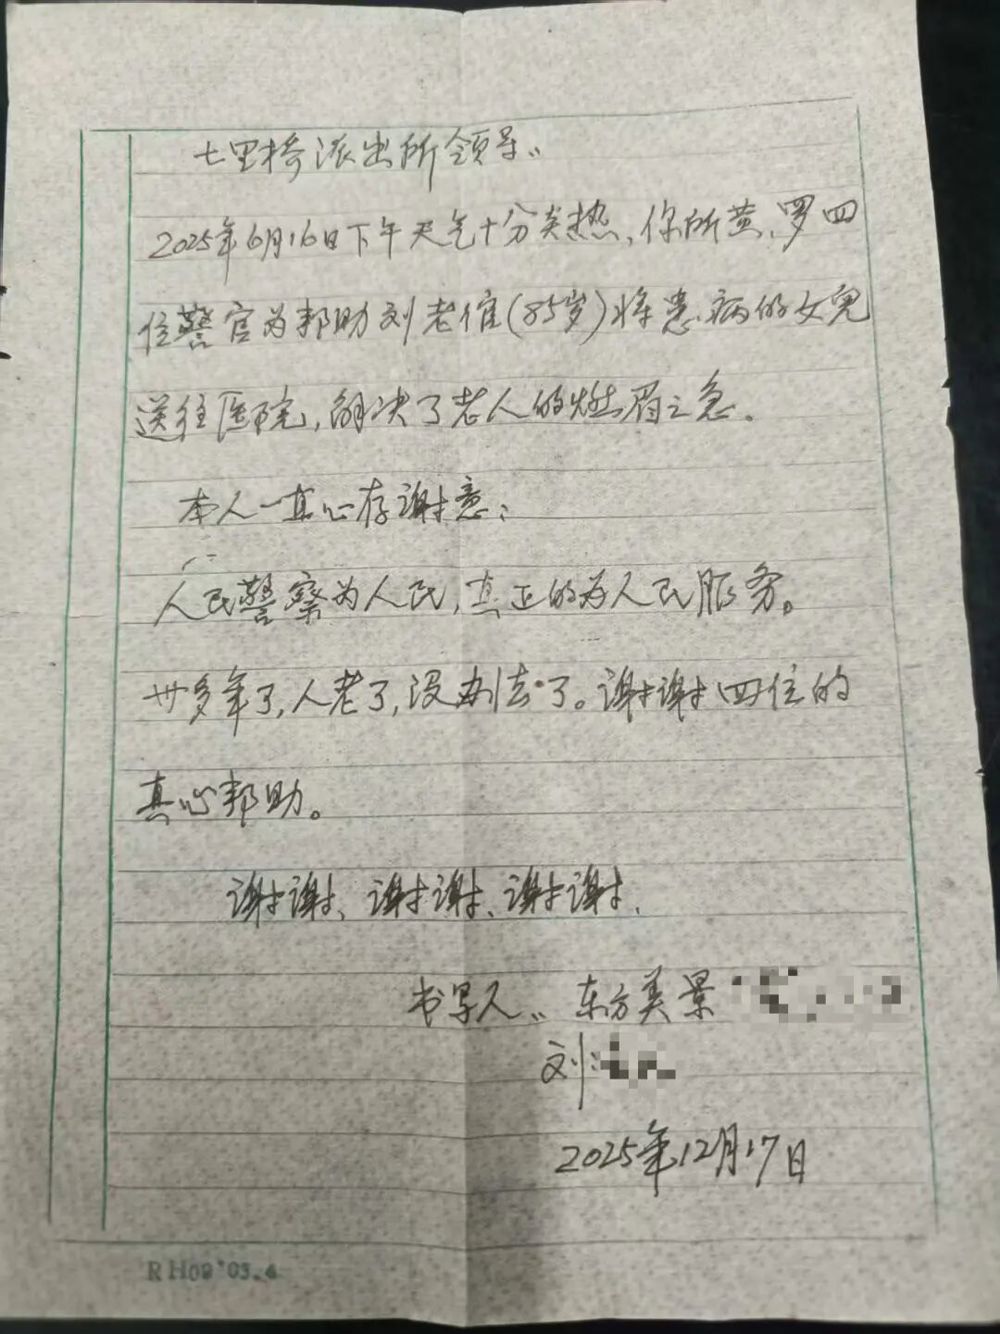 七里桥派出所领导：
2025年6月16日下午天气十分炎热，你所黄、罗四
位警官为帮助刘老倌(85岁)将患病的女儿
送往医院，解决了老人的燃眉之急。
本人一直心存谢意：
人民警察为人民，真正的为人民服务。
卅多年了，人老了，没办法了。谢谢四位的
真心帮助。
谢谢、谢谢、谢谢.
书写人：东方美景
刘
2025年12月17日
RH09'03.4